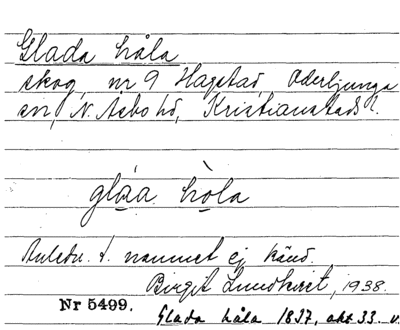 Glada håla
skog, nr 9 Hagstad, Oderljunga
sn, N. Åsbo hd, Kristianstads l.
gláa hòla
Anledn. t. namnet ej känd.
Birgit Lundkvist, 1938.
Nr 5499.
Glada håla 1837, akt 33. v.